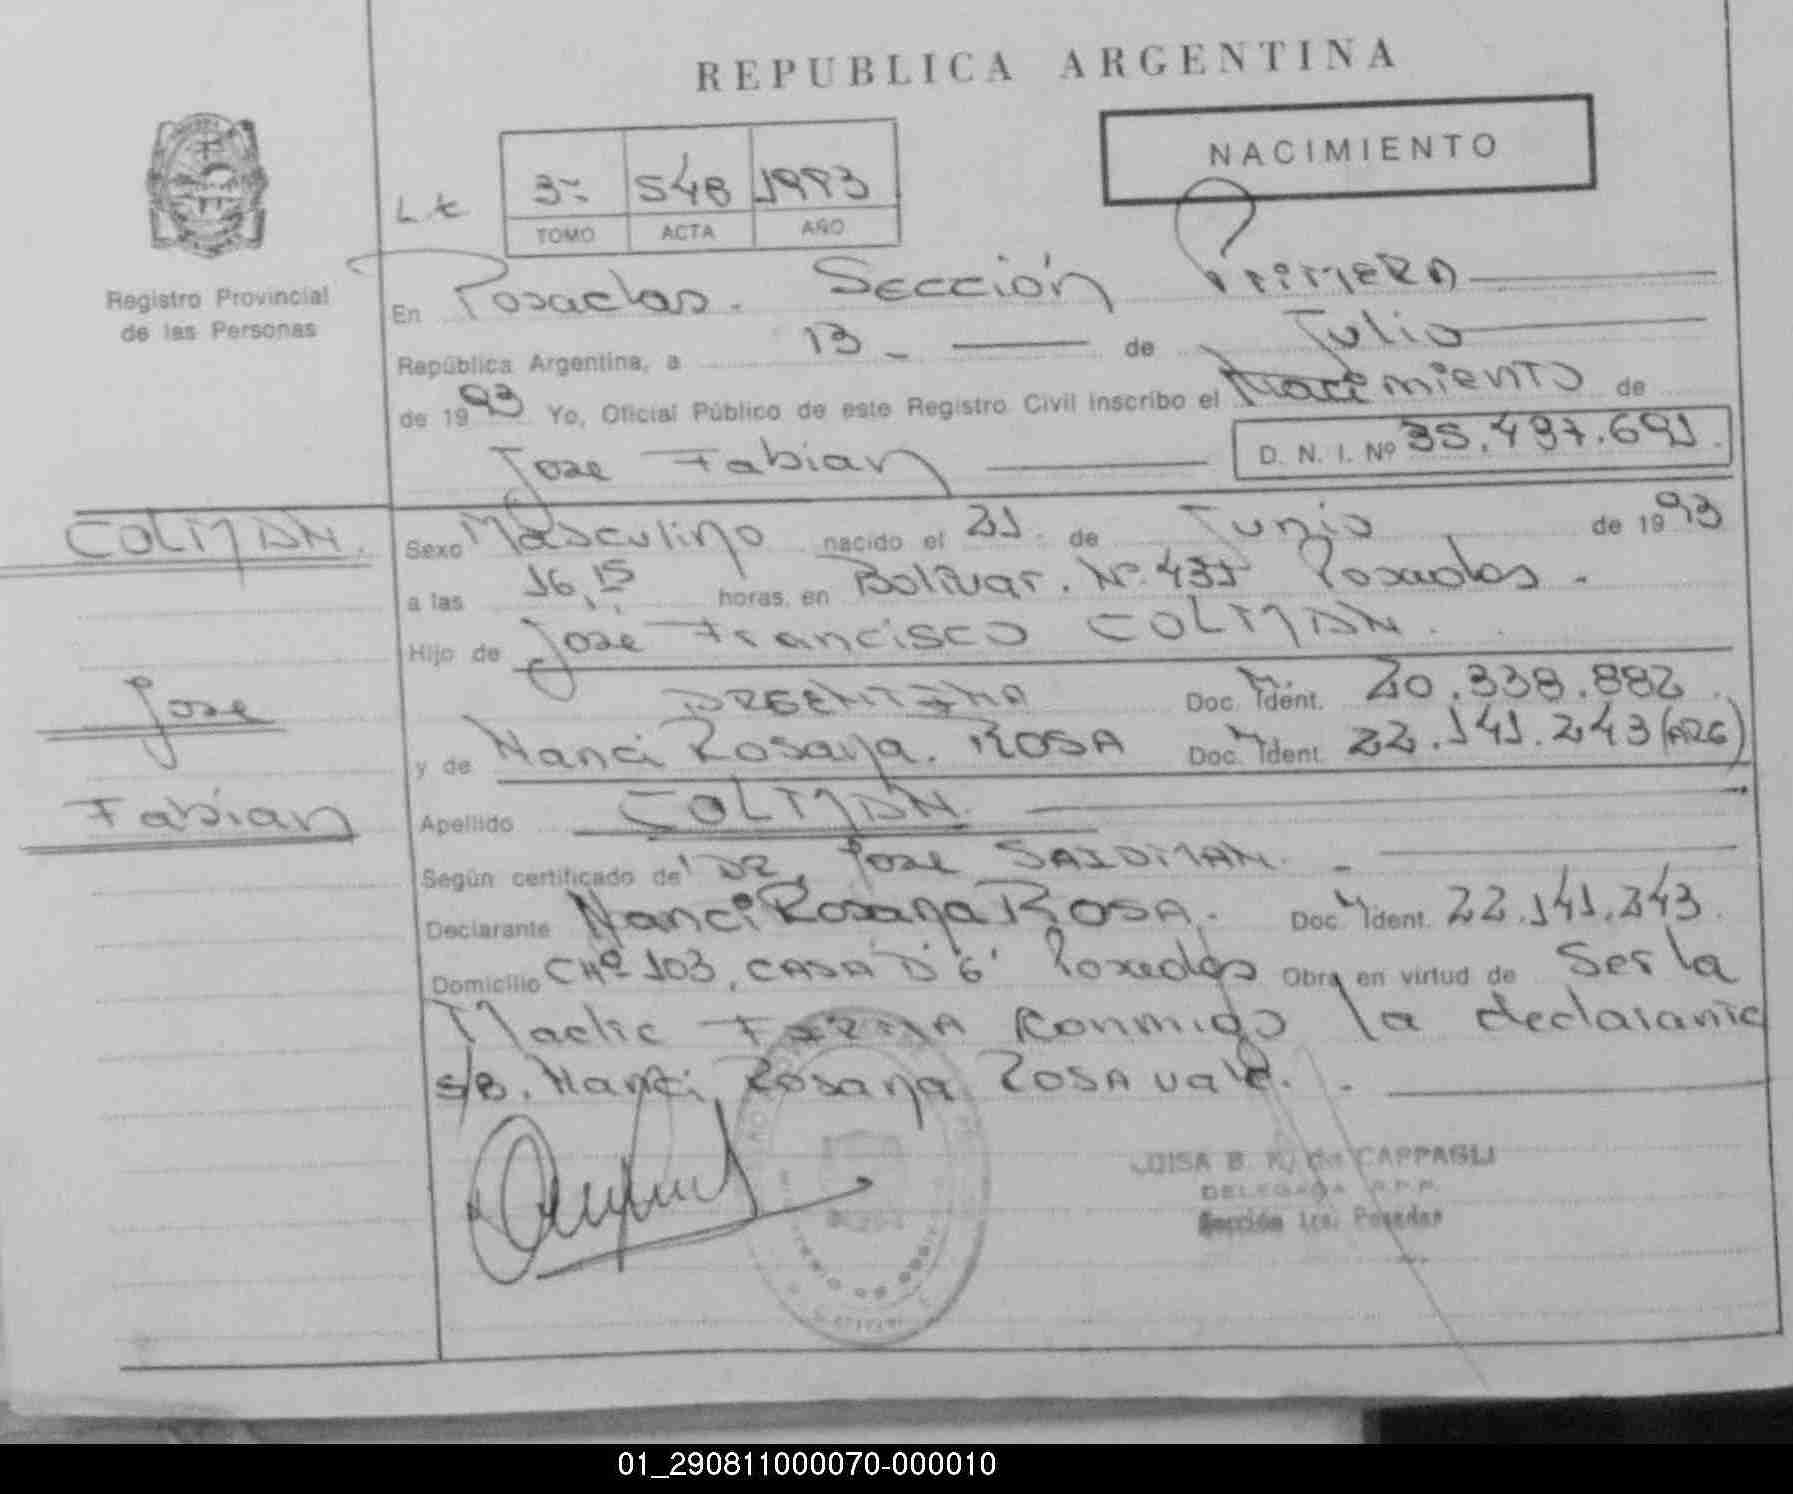 REPUBLICA ARGENTINA
NACIMIENTO
Lt 3= 548 1993
TOMO ACTA AÑO
Registro Provincial
de las Personas
En Posadas. Sección Primera
República Argentina, a 13 - de Julio
de 1993 Yo, Oficial Público de este Registro Civil inscribo el Nacimiento de
Jose Fabian D. N. I. Nº 35.497.691.
COLMAN.
Sexo Masculino nacido el 21 de Junio de 1993
a las 16,15 horas, en Bolivar. Nº 431 Posadas.
Hijo de José Francisco COLMAN.
Jose
ARGENTINA Doc. Ident. 20.338.882
y de Nanci Rosana. ROSA Doc. Ident. 22.141.243 (ARG)
Fabian
Apellido COLMAN.
Según certificado de DR. Jose SAIDMAN.
Declarante Nanci Rosana ROSA. Doc. Ident. 22.141.243.
Domicilio CHº 103, CASA D'6' Posadas Obra en virtud de Ser la
Madre FIRMA Conmigo la declarante
s/B. Nanci Rosana ROSA vale.
LUISA B. K. de CAPPAGLI
DELEGADA R.P.P.
Sección 1ra. Posadas
01_290811000070-000010